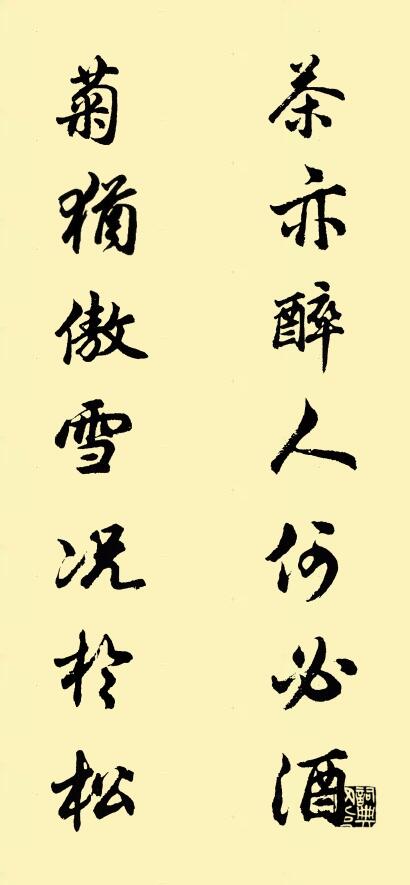 茶亦醉人何必酒
菊犹傲雪况於松